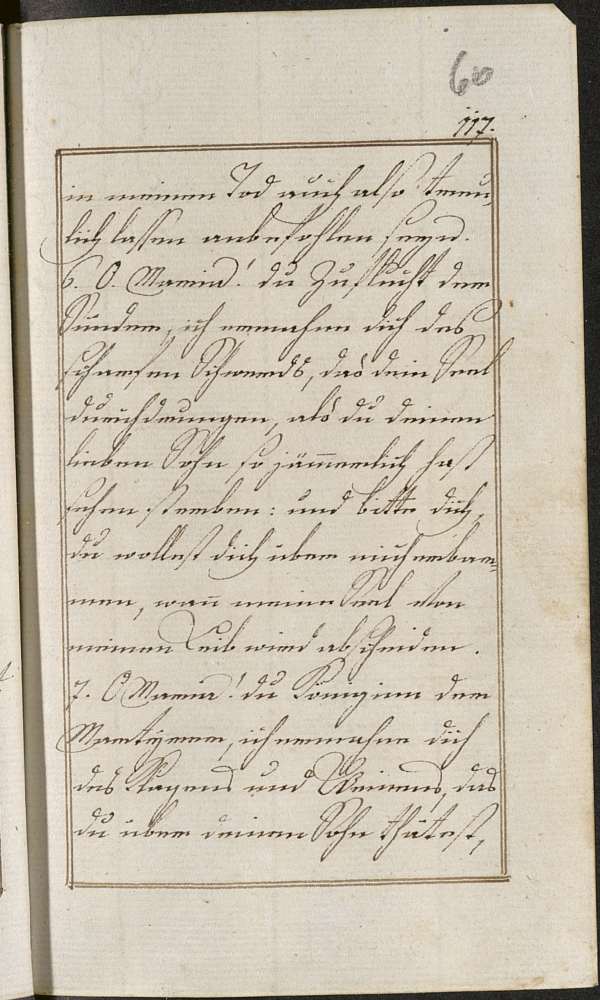 60
117.
in meinen Tod auch also treu-
lich lassen anbefohlen seyn.
6. O. Maria! du Zuflucht der
Sünder, ich ermahne dich des
scharfen Schwerds, das dein Seel
durchdrungen, als du deinen
lieben Sohn so jämerlich hast
sehen sterben: und bitte dich,
du wollest dich über mich erbar-
men, wan meine Seel von
meinen Leib wird abscheiden.
7. O Maria! du Königinn der
Martÿrer, ich ermahne dich
des Klagens und Weinens, das
du über deinen Sohn thätest,